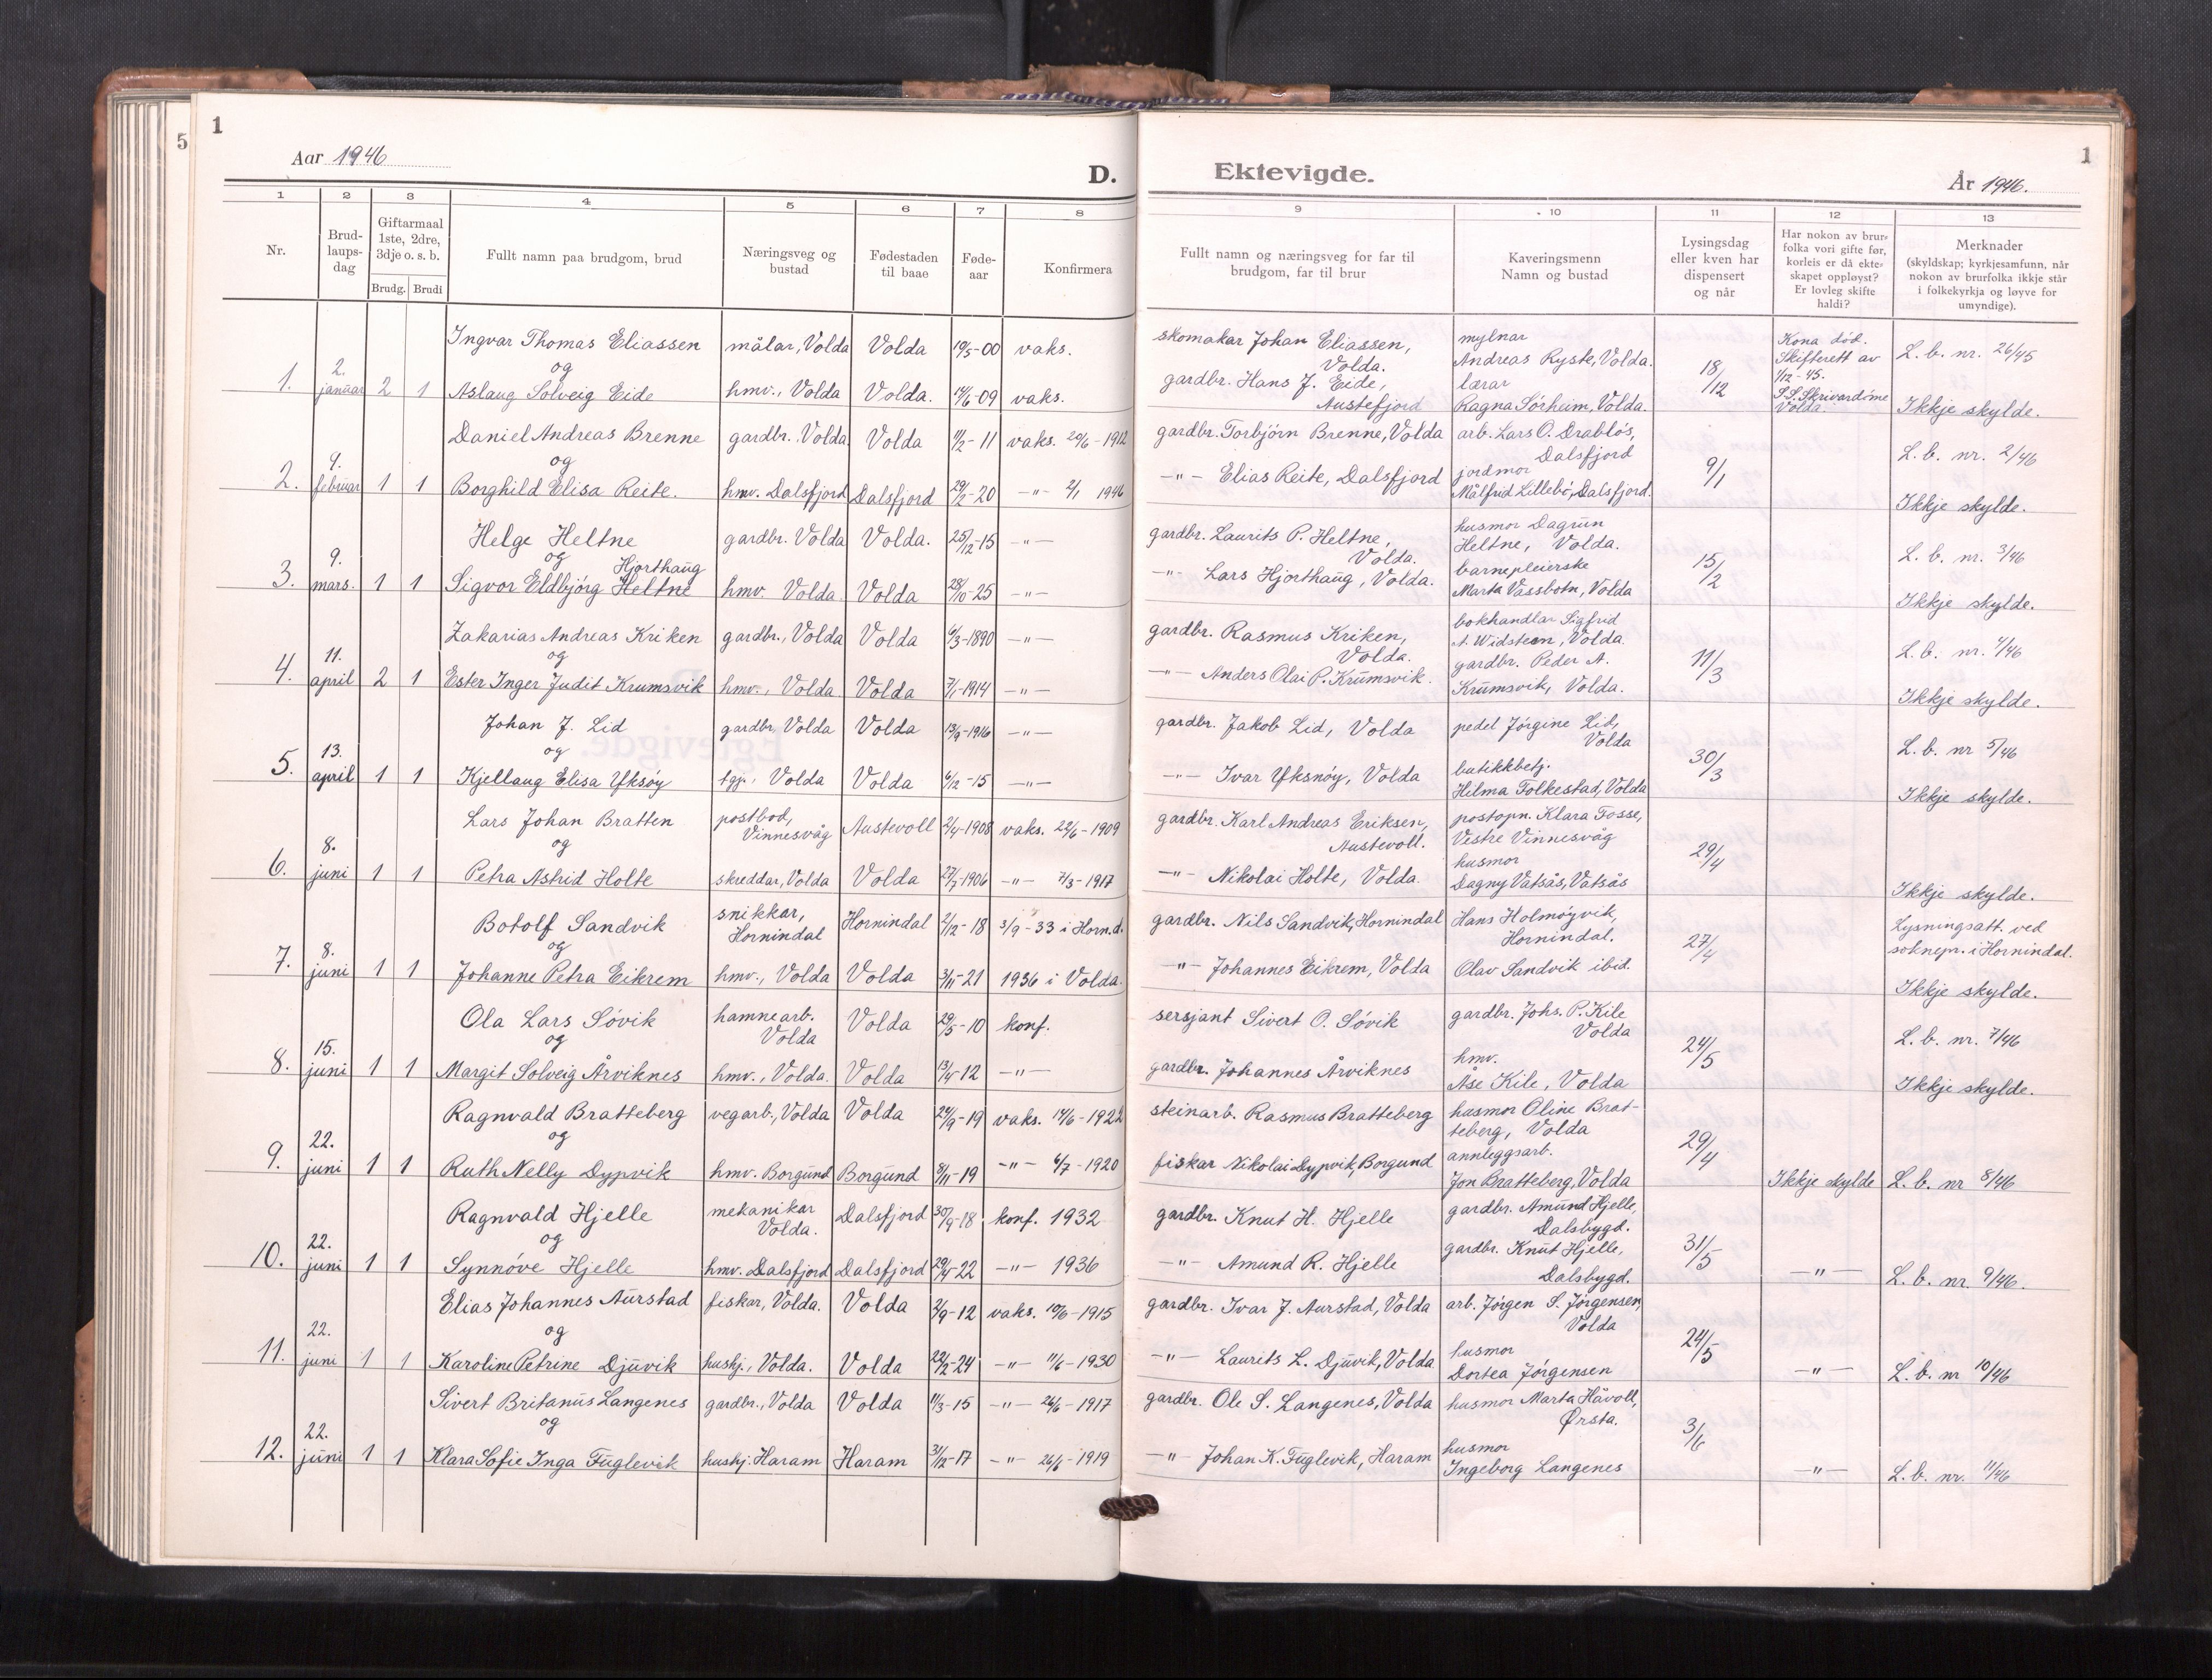 5
1
Aar 1946
D.
1 2 3 4 5 6 7 8
Nr.
Brud-
laups-
dag
Giftarmaal
1ste, 2dre,
3dje o. s. b.
Brudg. Brudi
Fullt namn paa brudgom, brud
Næringsveg og
bustad
Fødestaden
til baae
Føde-
aar
Konfirmera
Ingvar Thomas Eliassen målar, Volda Volda 19/5-00 vaks.
og
1. 2. januar 2 1 Aslaug Solveig Eide hmv., Volda Volda. 14/6-09 vaks.
Daniel Andreas Brenne gardbr. Volda Volda 11/2-11 vaks. 29/6-1912
og
2. 9. februar 1 1 Borghild Elisa Reite. hmv. Dalsfjord Dalsfjord 29/2-20 -"- 2/1 1946
Helge Heltne gardbr. Volda Volda. 25/12-15 -"-
og Hjorthaug
3. 9. mars. 1 1 Sigvor Eldbjörg Heltne hmv. Volda Volda 28/10-25 -"-
Zakarias Andreas Kriken gardbr., Volda Volda 6/3-1890 -"-
og
4. 11. april 2 1 Ester Inger Judit Krumsvik hmv., Volda Volda 7/1-1914 -"-
Johan J. Lid gardbr. Volda Volda 13/9-1916 -"-
og
5. 13. april 1 1 Kjellaug Elisa Yksöy tgj., Volda Volda 6/12-15 -"-
Lars Johan Bratten postbod, Vinnesvåg Austevoll 2/4-1908 vaks. 22/6-1909
og
6. 8. juni 1 1 Petra Astrid Holte skreddar, Volda Volda 27/7-1906 -"- 7/3-1917
Botolf Sandvik snikkar, Hornindal Hornindal 2/12-18 3/9-33 i Horn.d.
og
7. 8. juni 1 1 Johanne Petra Eikrem hmv., Volda Volda 3/11-21 1936 i Volda.
Ola Lars Sövik hamnearb. Volda Volda 29/5-10 konf.
og
8. 15. juni 1 1 Margit Solveig Årviknes hmv., Volda. Volda 13/4-12 -"-
Ragnvald Bratteberg vegarb., Volda Volda 24/9-19 vaks. 14/6-1922
og
9. 22. juni 1 1 Ruth Nelly Dypvik hmv. Borgund Borgund 8/11-19 -"- 4/7-1920
Ragnvald Hjelle mekanikar Volda. Dalsfjord 30/9-18 konf. 1932
og
10. 22. juni 1 1 Synnöve Hjelle hmv. Dalsfjord Dalsfjord 29/4-22 -"- 1936
Elias Johannes Aurstad fiskar, Volda. Volda 2/9-12 vaks. 10/6-1915
og
11. 22. juni 1 1 Karoline Petrine Djuvik hushj., Volda. Volda 22/2-24 -"- 11/6-1930
Sivert Britanus Langenes gardbr., Volda Volda 11/3-15 -"- 26/6-1917
og
12. 22. juni 1 1 Klara Sofie Inga Fuglevik hushj. Haram Haram 31/12-17 -"- 26/6-1919
1
Ektevigde.
År 1946.
9 10 11 12 13
Fullt namn og næringsveg for far til
brudgom, far til brur
Kaveringsmenn
Namn og bustad
Lysingsdag
eller kven har
dispensert
og når
Har nokon av brur-
folka vori gifte før,
korleis er då ekte-
skapet oppløyst?
Er lovleg skifte
haldi?
Merknader
(skyldskap; kyrkjesamfunn, når
nokon av brurfolka ikkje står
i folkekyrkja og løyve for
umyndige).
skomakar Johan Eliassen, Volda. mylnar Andreas Ryste, Volda. 18/12 Kona död. Skifterett av 1/12-45. S.S. Skrivardöme Volda. L. b. nr. 26/45
gardbr. Hans J. Eide, Austefjord lærar Ragna Sörheim, Volda. Ikkje skylde.
gardbr. Torbjörn Brenne, Volda arb. Lars O. Drablös, Dalsfjord 9/1 L. b. nr. 2/46
-"- Elias Reite, Dalsfjord jordmor Målfrid Lillebö, Dalsfjord. Ikkje skylde.
gardbr. Laurits P. Heltne, Volda. husmor Dagrun Heltne, Volda. 15/2 L. b. nr. 3/46
-"- Lars Hjorthaug, Volda. barnepleierske Marta Vassbotn, Volda Ikkje skylde.
gardbr. Rasmus Kriken, Volda. bokhandlar Sigfrid A. Widsteen, Volda. 11/3 L. b. nr. 4/46
-"- Anders Olai P. Krumsvik. gardbr. Peder A. Krumsvik, Volda. Ikkje skylde.
gardbr. Jakob Lid, Volda pedel Jörgine Lid, Volda 30/3 L. b. nr 5/46
-"- Ivar Yksnöy, Volda butikkbetj. Hilma Folkestad, Volda Ikkje skylde.
gardbr. Karl Andreas Eriksen, Austevoll. postopn. Klara Fosse, Vestre Vinnesvåg 29/4
-"- Nikolai Holte, Volda. husmor Dagny Vatsås, Vatsås Ikkje skylde.
gardbr. Nils Sandvik, Hornindal Hans Holmöyvik, Hornindal. 27/4 Lysningsatt. ved soknepr. i Hornindal.
-"- Johannes Eikrem, Volda Olav Sandvik ibid. Ikkje skylde.
sersjant Sivert O. Sövik gardbr. Johs. P. Kile Volda 24/5 L. b. nr. 7/46
gardbr. Johannes Årviknes hmv. Åse Kile, Volda Ikkje skylde.
steinarb. Rasmus Bratteberg husmor Oline Brat-
teberg, Volda 29/4
fiskar Nikolai Dypvik, Borgund annleggsarb. Jon Bratteberg, Volda Ikkje skylde L. b. nr 8/46
gardbr. Knut H. Hjelle gardbr. Amund Hjelle, Dalsbygd. 31/5
-"- Amund R. Hjelle gardbr. Knut Hjelle, Dalsbygd. -"- L. b. nr. 9/46.
gardbr. Ivar J. Aurstad, Volda arb. Jörgen S. Jörgensen, Volda 24/5
-"- Laurits L. Djuvik, Volda husmor Dortea Jörgensen -"- L. b. nr 10/46
gardbr. Ole S. Langenes, Volda husmor Marta Håvoll, Ørsta. 3/6
-"- Johan K. Fuglevik, Haram husmor Ingeborg Langenes -"- L. b. nr. 11/46